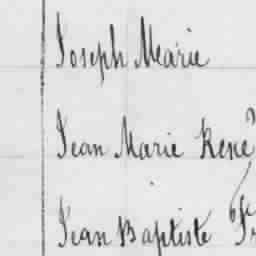 Joseph Marie
Jean Marie René
Jean Baptiste